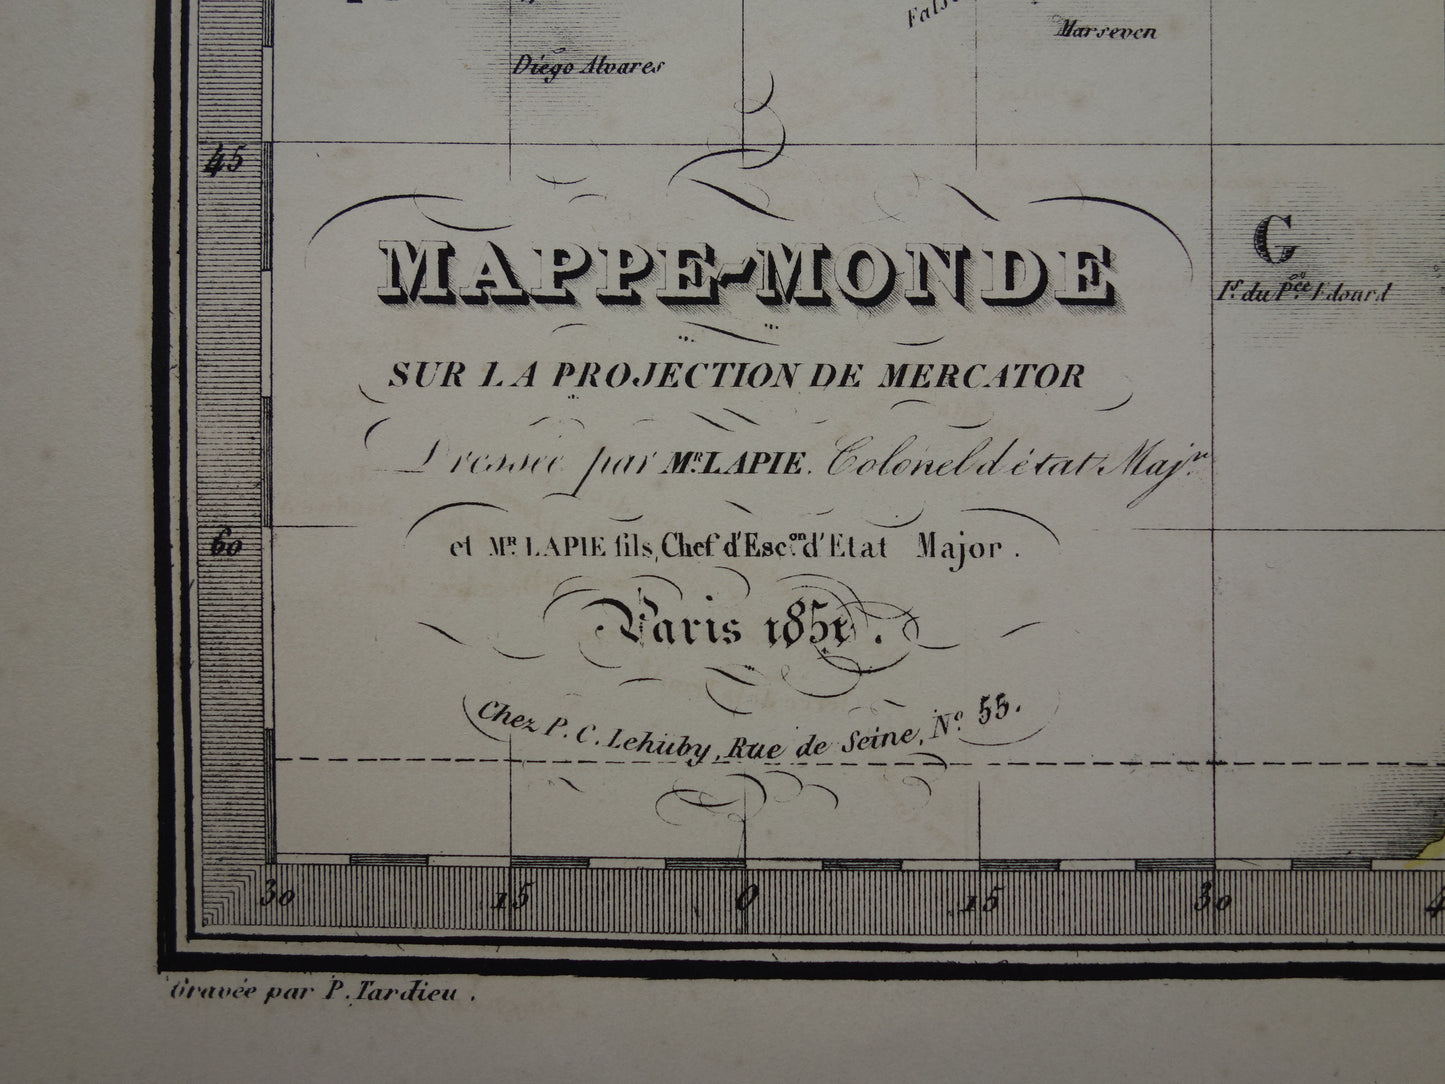 Marseven
Diego Alvares
45
MAPPE-MONDE
G
Is. du Pce. Edouard
SUR LA PROJECTION DE MERCATOR
Dressée par Mr. LAPIE. Colonel d'état Majr.
60
et Mr. LAPIE fils, Chef d'Escon. d'Etat Major.
Paris 1851.
Chez P. C. Lehuby, Rue de Seine, No. 55.
30 15 0 15 30
Gravée par P. Tardieu.